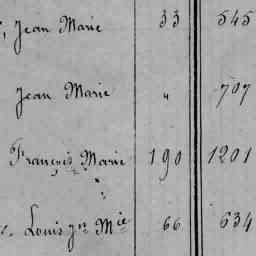 , Jean Marie 33 545
Jean Marie " 707
François Marie 190 1201
Louis Jn Mie 66 634